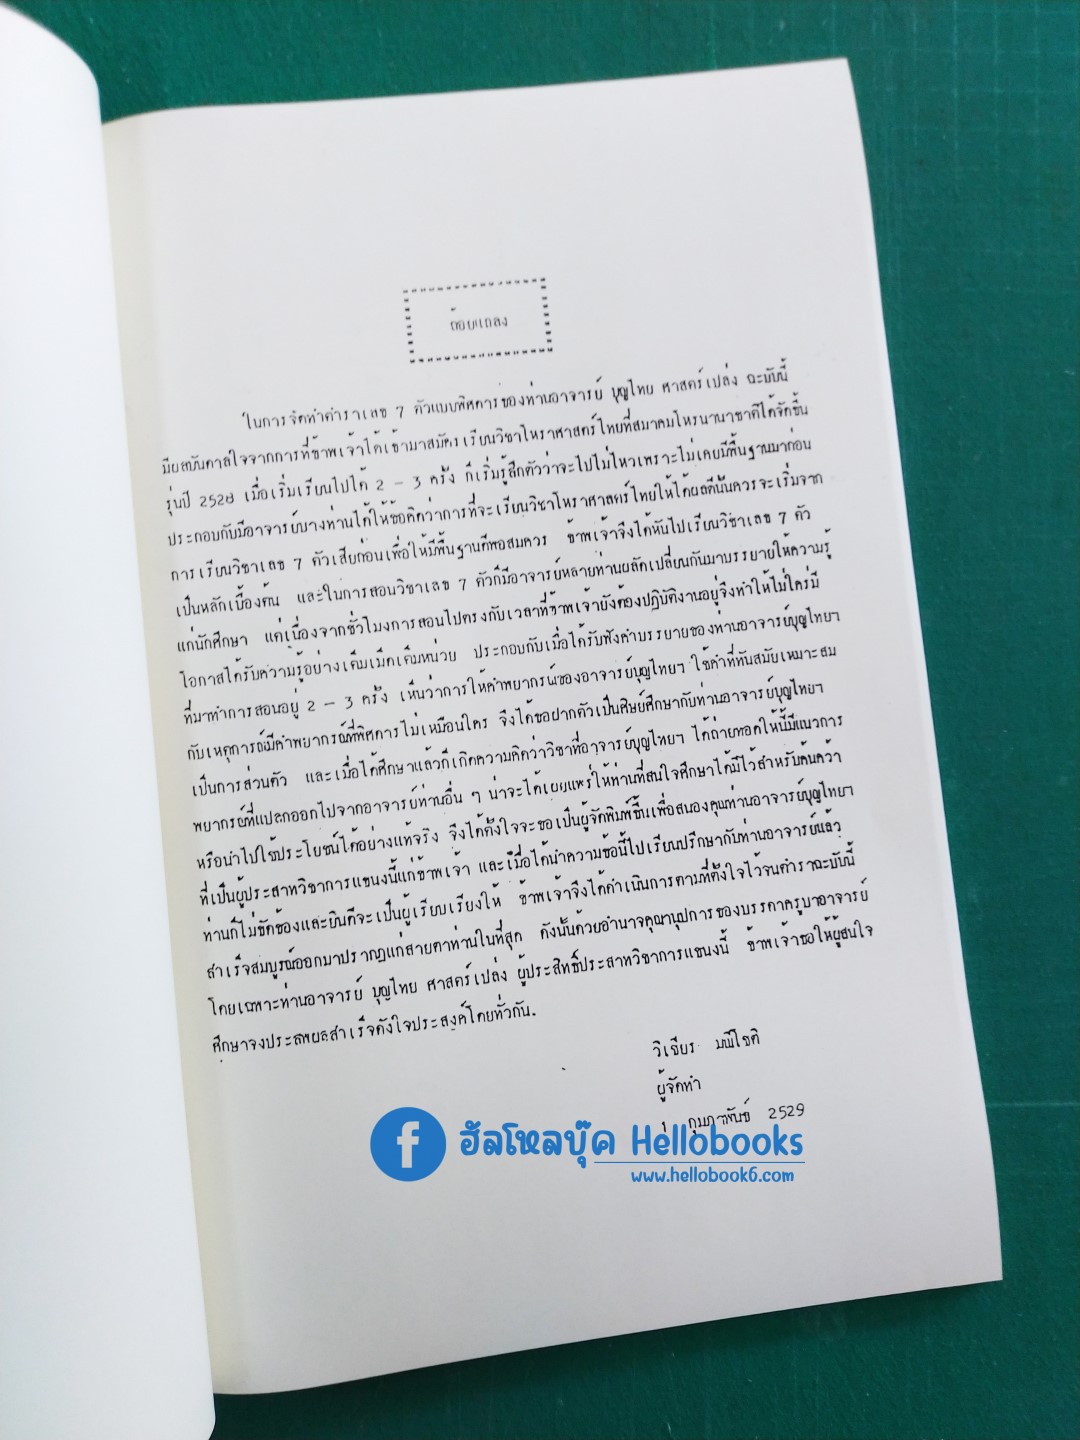 ถ้อยแถลง
ในการจัดทำตำราเลข 7 ตัวแบบพิศดารของท่านอาจารย์ บุญไทย ศาสตร์เปล่ง ฉะบับนี้
มียลบันดาลใจจากการที่ข้าพเจ้าได้เข้ามาสมัครเรียนวิชาโหราศาสตร์ไทยที่สมาคมโหรนานาชาติได้จัดขึ้น
รุ่นปี 2528 เมื่อเริ่มเรียนไปได้ 2 - 3 ครั้ง ก็เริ่มรู้สึกตัวว่าจะไปไม่ไหวเพราะไม่เคยมีพื้นฐานมาก่อน
ประกอบกับมีอาจารย์บางท่านได้ให้ข้อคิดว่าการที่จะเรียนวิชาโหราศาสตร์ไทยให้ได้ผลดีนั้นควรจะเริ่มจาก
การเรียนวิชาเลข 7 ตัวเสียก่อนเพื่อให้มีพื้นฐานดีพอสมควร ข้าพเจ้าจึงได้หันไปเรียนวิชาเลข 7 ตัว
เป็นหลักเบื้องต้น และในการสอนวิชาเลข 7 ตัวก็มีอาจารย์หลายท่านผลัดเปลี่ยนกันมาบรรยายให้ความรู้
แก่นักศึกษา แต่เนื่องจากชั่วโมงการสอนไปตรงกับเวลาที่ข้าพเจ้ายังต้องปฏิบัติงานอยู่จึงทำให้ไม่ใคร่มี
โอกาสได้รับความรู้อย่างเต็มเม็ดเต็มหน่วย ประกอบกับเมื่อได้รับฟังคำบรรยายของท่านอาจารย์บุญไทยฯ
ที่มาทำการสอนอยู่ 2 - 3 ครั้ง เห็นว่าการให้คำพยากรณ์ของอาจารย์บุญไทยฯ ใช้คำที่ทันสมัยเหมาะสม
กับเหตุการณ์มีคำพยากรณ์ที่พิศดารไม่เหมือนใคร จึงได้ขอฝากตัวเป็นศิษย์ศึกษากับท่านอาจารย์บุญไทยฯ
เป็นการส่วนตัว และเมื่อได้ศึกษาแล้วก็เกิดความคิดว่าวิชาที่อาจารย์บุญไทยฯ ได้ถ่ายทอดให้นี้มีแนวการ
พยากรย์ที่แปลกออกไปจากอาจารย์ท่านอื่น ๆ น่าจะได้เผยแพร่ให้ท่านที่สนใจศึกษาได้มีไว้สำหรับค้นคว้า
หรือนำไปใช้ประโยชน์ได้อย่างแท้จริง จึงได้ตั้งใจจะขอเป็นผู้จัดพิมพ์ขึ้นเพื่อสนองคุณท่านอาจารย์บุญไทยฯ
ที่เป็นผู้ประสาทวิชาการแขนงนี้แก่ข้าพเจ้า และเมื่อได้นำความข้อนี้ไปเรียนปรึกษากับท่านอาจารย์แล้ว
ท่านก็ไม่ขัดข้องและยินดีจะเป็นผู้เรียบเรียงให้ ข้าพเจ้าจึงได้ดำเนินการตามที่ตั้งใจไว้จนตำราฉะบับนี้
สำเร็จสมบูรณ์ออกมาปรากฏแก่สายตาท่านในที่สุด ดังนั้นด้วยอำนาจคุณานุปการของบรรดาครูบาอาจารย์
โดยเฉพาะท่านอาจารย์ บุญไทย ศาสตร์เปล่ง ผู้ประสิทธิ์ประสาทวิชาการแขนงนี้ ข้าพเจ้าขอให้ผู้สนใจ
ศึกษาจงประสพผลสำเร็จดังใจประสงค์โดยทั่วกัน.
วิเชียร มณีโชติ
ผู้จัดทำ
กุมภาพันธ์ 2529
f ฮัลโหลบุ๊ค Hellobooks
www.hellobook6.com